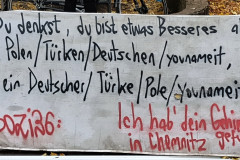 Du denkst, du bist etwas Besseres a
Polen/Türken/Deutschen/younameit,
ein Deutscher/Türke/Pole/younameit
Ich hab' dein Gehirn
in Chemnitz